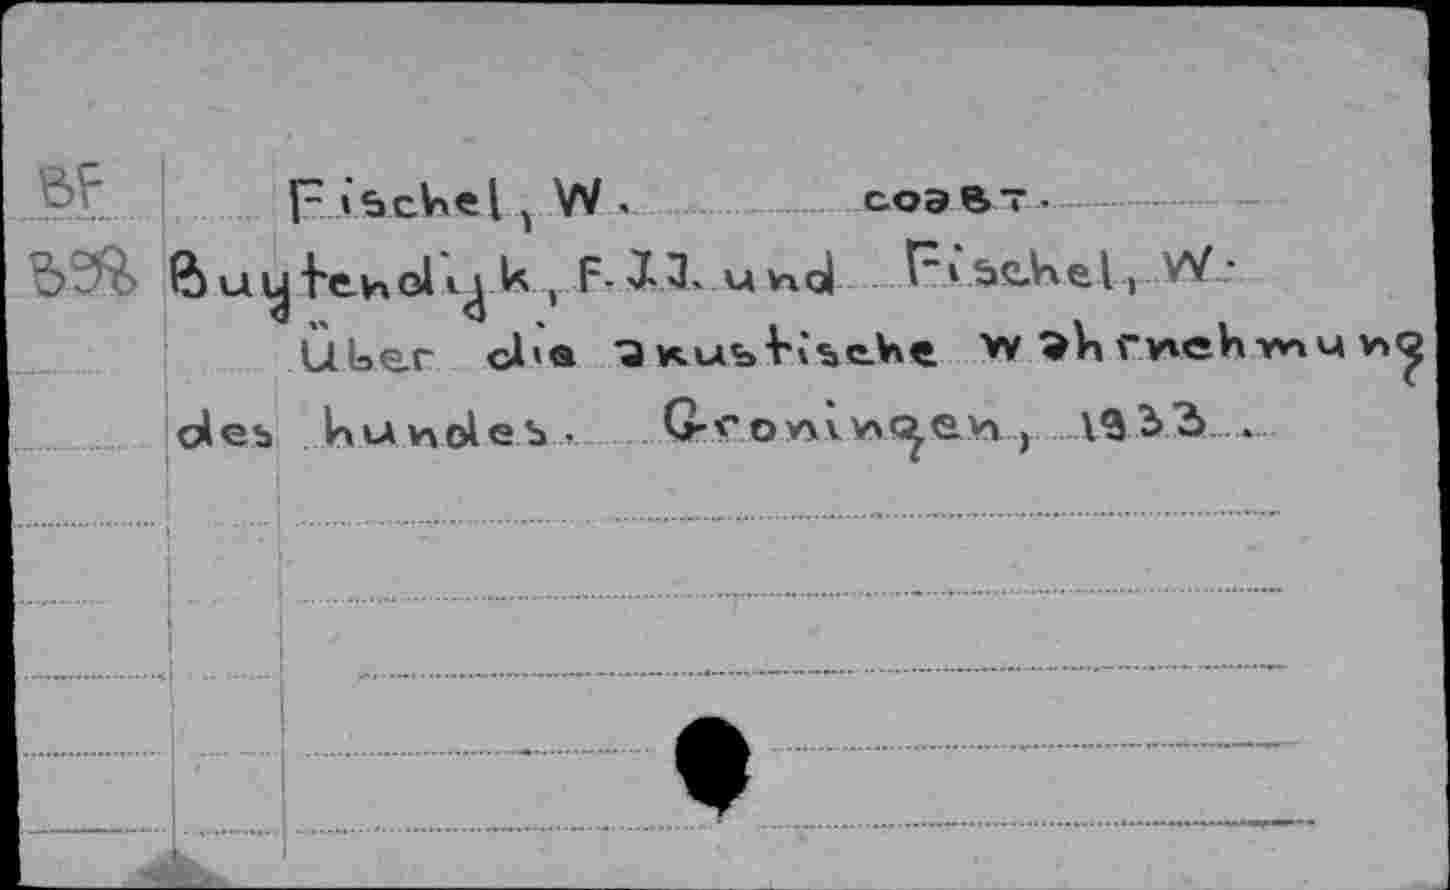 BF Fischel, W. соавт.
B98 Buytendijk, F.J.J. und Fischel, W.
Über die akustische wahrnehmung
des hundes. Groningen, 1933.